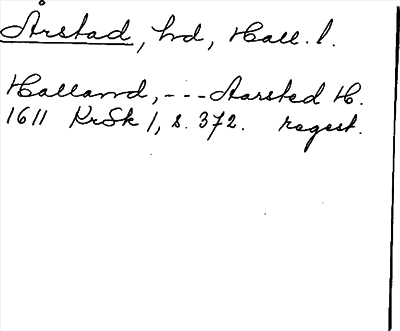 Årstad, hd, Hall. l.
Halland, --- Aarsted H.
1611 KrSk 1, s. 372. regest.